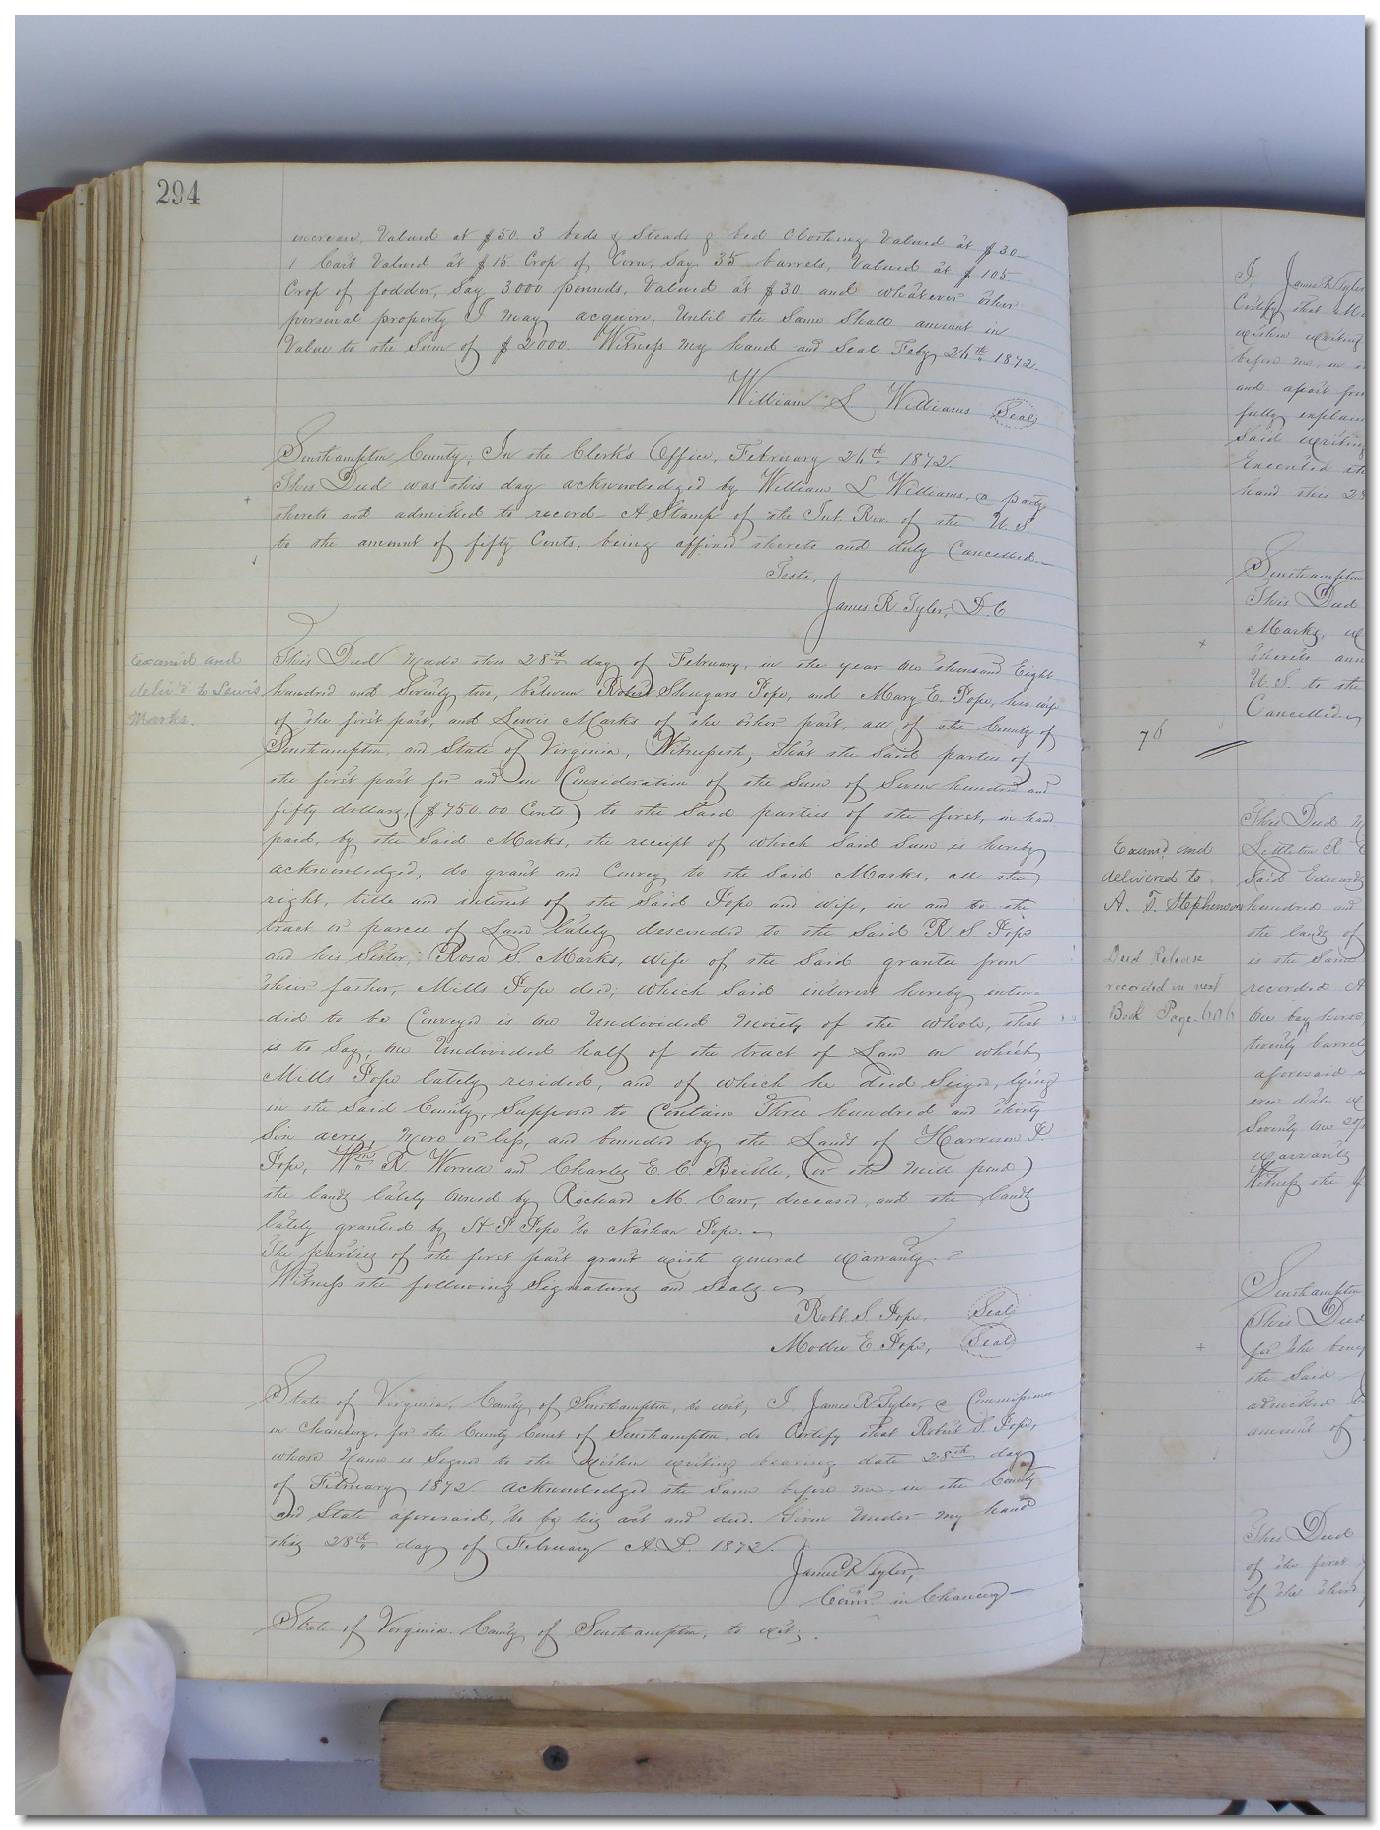 294
increase, Valued at $50. 3 beds & Steads & bed Clothing Valued at $30-
1 Cart Valued at $15 Crop of Corn, Say 35 barrels, Valued at $105-
Crop of fodder, Say 3000 pounds, Valued at $30 and whatever other
personal property I may acquire, Until the Same Shall amount in
Value to the Sum of $2000. Witness my hand and Seal Feby 24th 1872.
William L Williams Seal
Southampton County; In the Clerk's Office, February 24th 1872.
This Deed was this day acknowledged by William L Williams, a party
thereto and admitted to record- A Stamp of the Int. Rev. of the U.S
to the amount of fifty Cents, being affixed thereto and duly Cancelled-
Teste,
James R. Tyler, D.C
Examd and
deliv'd to Lewis
Marks.
This Deed made this 28th day of February, in the year one thousand Eight
hundred and Seventy two, between Robert Shugars Pope, and Mary E. Pope, his wife
of the first part, and Lewis Marks of the other part, all of the County of
Southampton, and State of Virginia, Witnesseth, that the Said parties of
the first part for and in Consideration of the Sum of Seven hundred and
fifty dollars, ($750.00 Cents) to the Said parties of the first, in hand
paid, by the Said Marks, the receipt of which Said Sum is hereby
acknowledged, do grant and Convey to the Said Marks, all the
right, title and interest of the Said Pope and wife, in and to the
tract or parcel of Land lately descended to the Said R S Pope
and his Sister, Rosa S. Marks, wife of the Said grantee from
their father, Mills Pope decd, which Said interest hereby inten-
ded to be Conveyed is one Undivided Moiety of the whole, that
is to Say, one Undivided half of the tract of Land on which
Mills Pope lately resided, and of which he died Seized, lying
in the Said County, Supposed to Contain Three hundred and thirty
Six acres, more or less, and bounded by the Lands of Harrison P.
Pope, Wm R Worrell and Charles E. C. Beittle, (or the mill pond)
the lands lately owned by Richard M. Carr, deceased, and the lands
lately granted by H P Pope to Nathan Pope.
The parties of the first part grant with general warranty.
Witness the following Signatures and Seals
Robt. S. Pope, Seal
Mollie E Pope, Seal
State of Virginia, County of Southampton, to wit, I James R. Tyler, a Commissioner
in Chancery, for the County Court of Southampton, do Certify that Robert S. Pope,
whose Name is Signed to the within writing bearing date 28th day
of February 1872 acknowledged the Same before me, in the County
and State aforesaid, to be his act and deed. Given Under my hand
this 28th day of February A.D. 1872.
James R Tyler,
Comr. in Chancery-
State of Virginia. County of Southampton, to wit;
I, James R Tyler
Certify that
within writing
before me, in
and apart from
fully explain
Said writing
Executed the
hand this 28
Southampton
This Deed
Marks,
thereto
U.S. to the
Cancelled
76
Examd, and
delivered to
A. T. Stephenson
Deed Release
recorded in next
Book Page 606
This Deed
Littleton R
Said Edwards
hundred and
the lands of
is the Same
recorded
One bay horse,
twenty barrels
aforesaid
ever date
Seventy one
warranty
Witness the
Southampton
This Deed
for the
the Said
amount of
This Deed
of the first
of the third